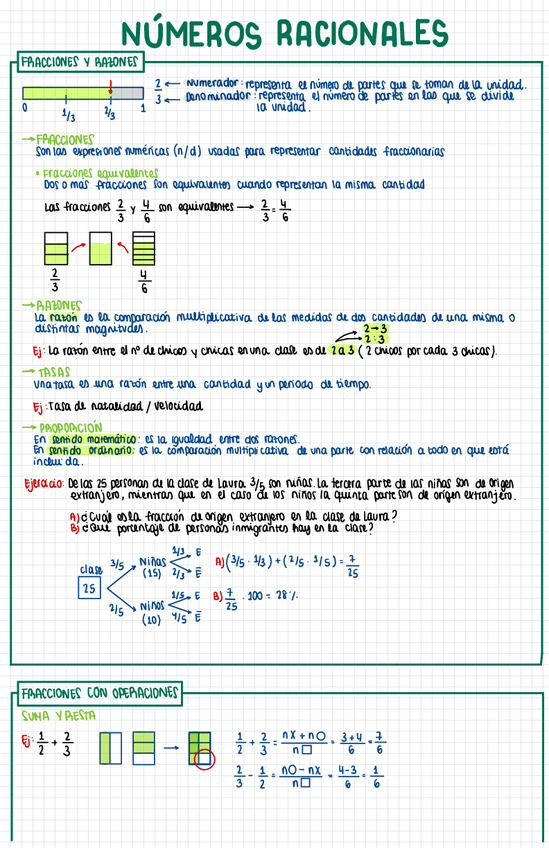 NÚMEROS RACIONALES
FRACCIONES Y RAZONES
0 1/3 2/3 1
2/3 ← Numerador: representa el número de partes que se toman de la unidad.
← Denominador: representa el número de partes en las que se divide
la unidad.
→ FRACCIONES
Son las expresiones numéricas (n/d) usadas para representar cantidades fraccionarias
• Fracciones equivalentes
Dos o más fracciones son equivalentes cuando representan la misma cantidad
Las fracciones 2/3 y 4/6 son equivalentes → 2/3 = 4/6
2/3 4/6
→ RAZONES
La razón es la comparación multiplicativa de las medidas de dos cantidades de una misma o
distintas magnitudes.
2→3
2:3
Ej: La razón entre el nº de chicos y chicas en una clase es de 2 a 3 (2 chicos por cada 3 chicas).
→ TASAS
Una tasa es una razón entre una cantidad y un periodo de tiempo.
Ej: Tasa de natalidad / velocidad
→ PROPORCIÓN
En sentido matemático: es la igualdad entre dos razones.
En sentido ordinario: es la comparación multiplicativa de una parte con relación a todo en que está
incluida.
Ejercicio: De las 25 personas de la clase de Laura 3/5 son niñas. La tercera parte de las niñas son de origen
extranjero, mientras que en el caso de los niños la quinta parte son de origen extranjero.
A) ¿Cuál es la fracción de origen extranjero en la clase de Laura?
B) ¿Qué porcentaje de personas inmigrantes hay en la clase?
clase 25
3/5 Niñas (15) 1/3 E 2/3 E̅
2/5 Niños (10) 1/5 E 4/5 E̅
A) (3/5 · 1/3) + (2/5 · 1/5) = 7/25
B) 7/25 · 100 = 28%
FRACCIONES CON OPERACIONES
SUMA Y RESTA
Ej: 1/2 + 2/3
→
1/2 + 2/3 = nX + nO / n□ = 3+4/6 = 7/6
2/3 - 1/2 = nO - nX / n□ = 4-3/6 = 1/6